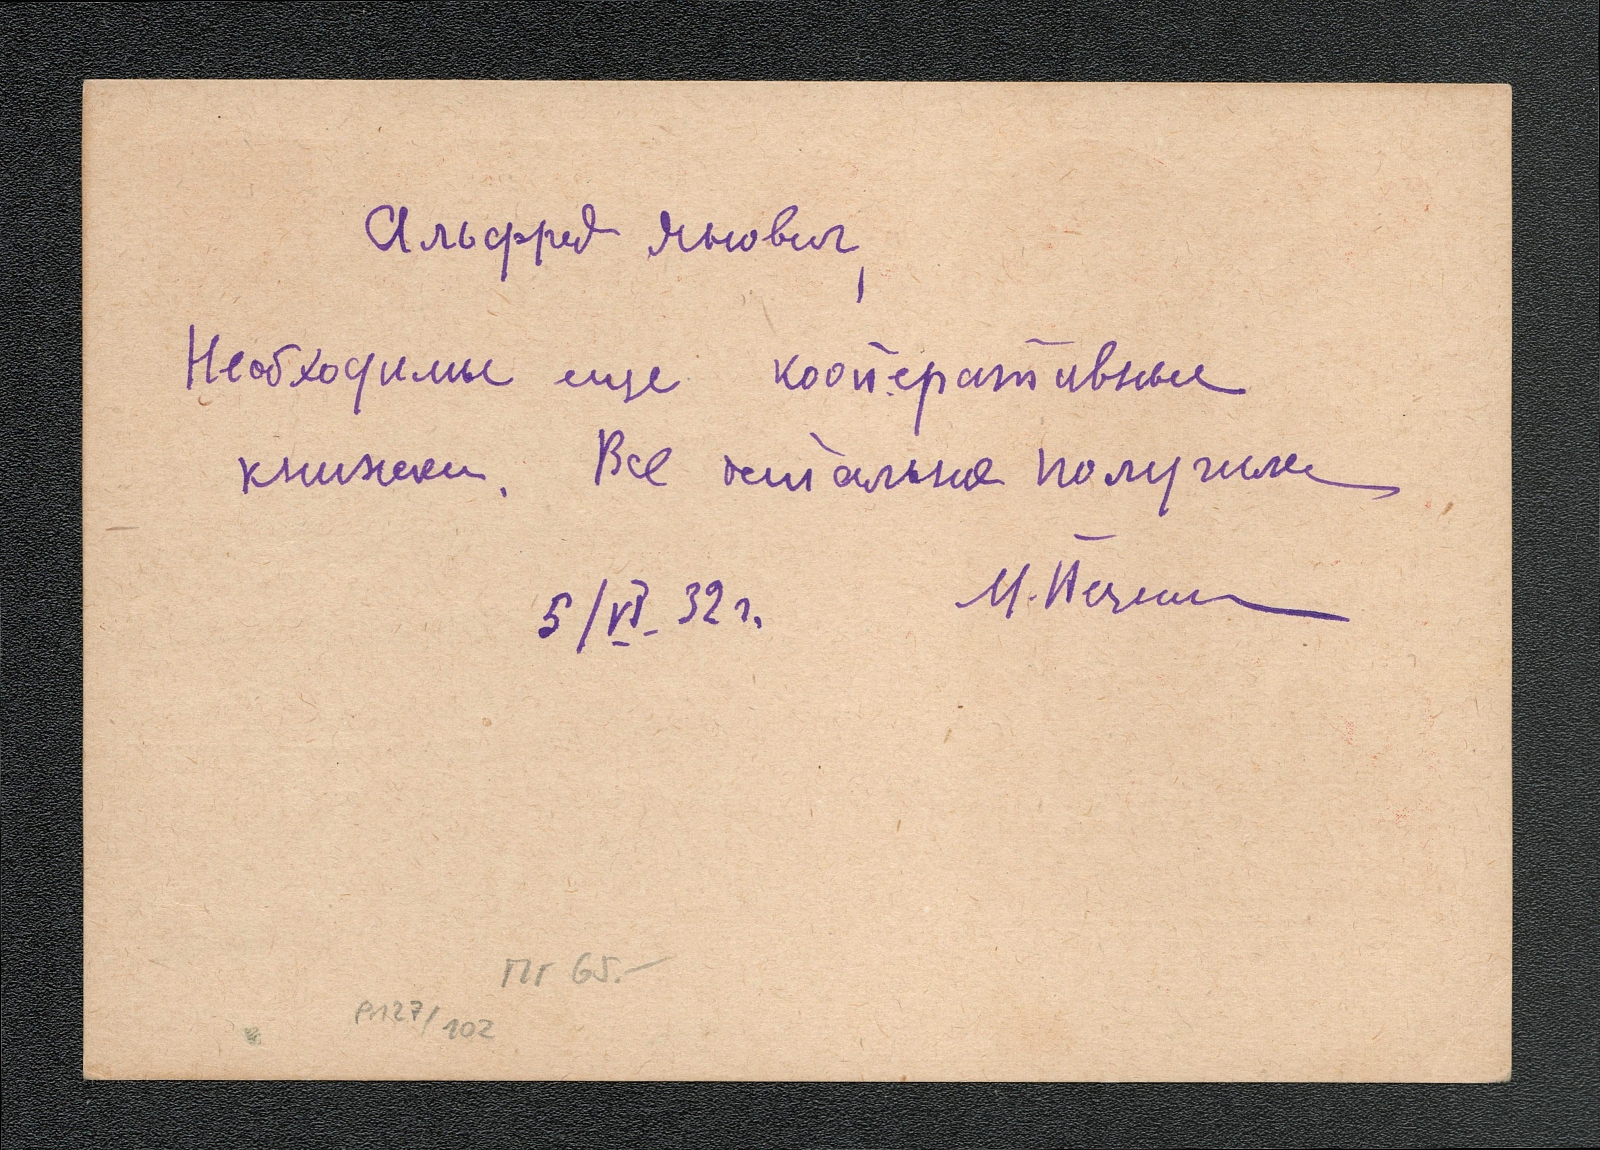 Альфред Янович,
Необходимы еще кооперативные
книжки. Все остальное получили
5/VI 32 г. М.
Пг 65.-
Р127/102